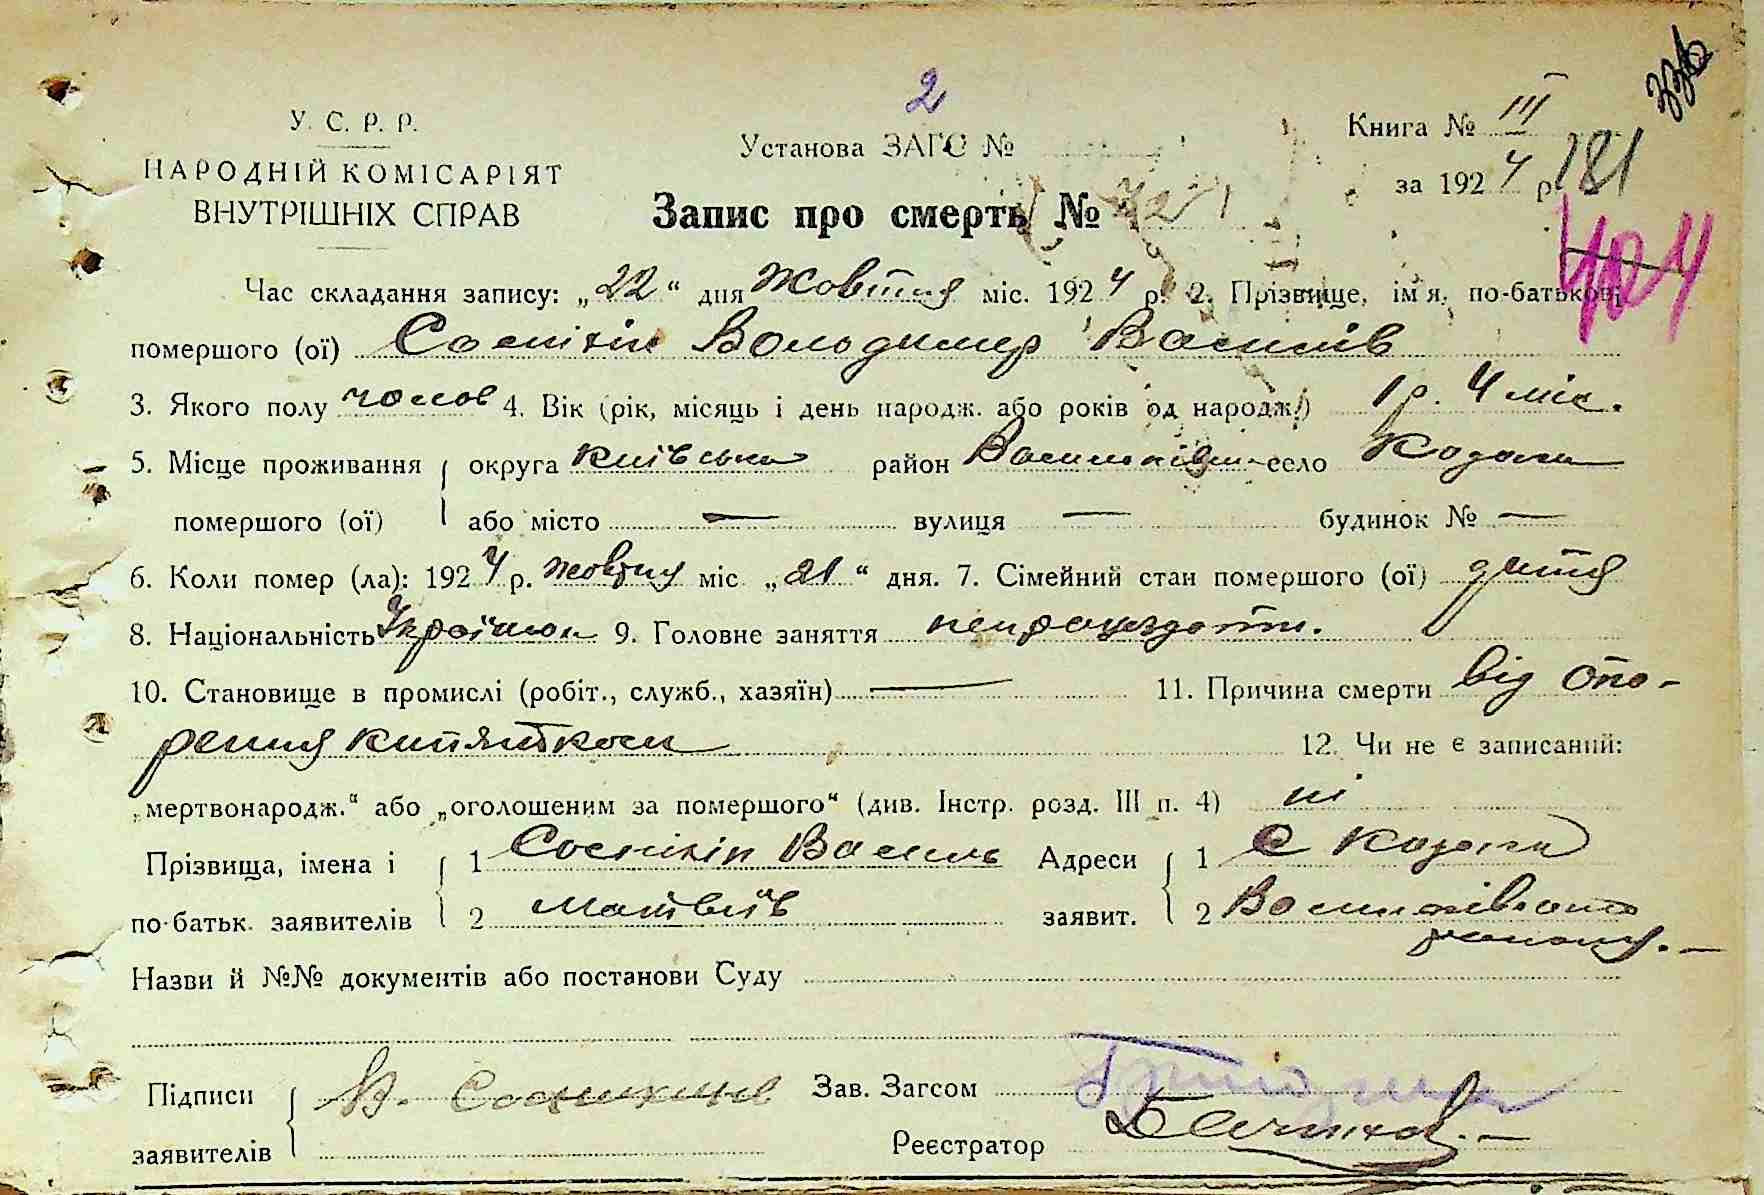 336
2
У. С. Р. Р.
НАРОДНІЙ КОМІСАРІЯТ
ВНУТРІШНІХ СПРАВ
Установа ЗАГС №
Книга № III
за 1924 р. 181
Запис про смерть №
404
Час складання запису: „22“ дня Жовтня міс. 1924 р. 2. Прізвище, ім'я, по-батькові
помершого (ої) Соснікін Володимир Василів
3. Якого полу чолов 4. Вік (рік, місяць і день народж. або років од народж.) 1 р. 4 міс.
5. Місце проживання округа Київська район Васильківськ село Кодаки
помершого (ої) або місто — вулиця — будинок № —
6. Коли помер (ла): 1924 р. жовтня міс „21“ дня. 7. Сімейний стан помершого (ої) дитя
8. Національність Українец 9. Головне заняття непрацездатн.
10. Становище в промислі (робіт., служб., хазяїн) — 11. Причина смерти від опа-
рення кипятком 12. Чи не є записаний:
„мертвонародж.“ або „оголошеним за помершого“ (див. Інстр. розд. III п. 4) ні
Прізвища, імена і 1 Соснікін Василь Адреси 1 С Кодаки
по-батьк. заявителів 2 Матвіїв заявит. 2 Васильківського
району. —
Назви й №№ документів або постанови Суду
Підписи В. Зав. Загсом
заявителів Реєстратор